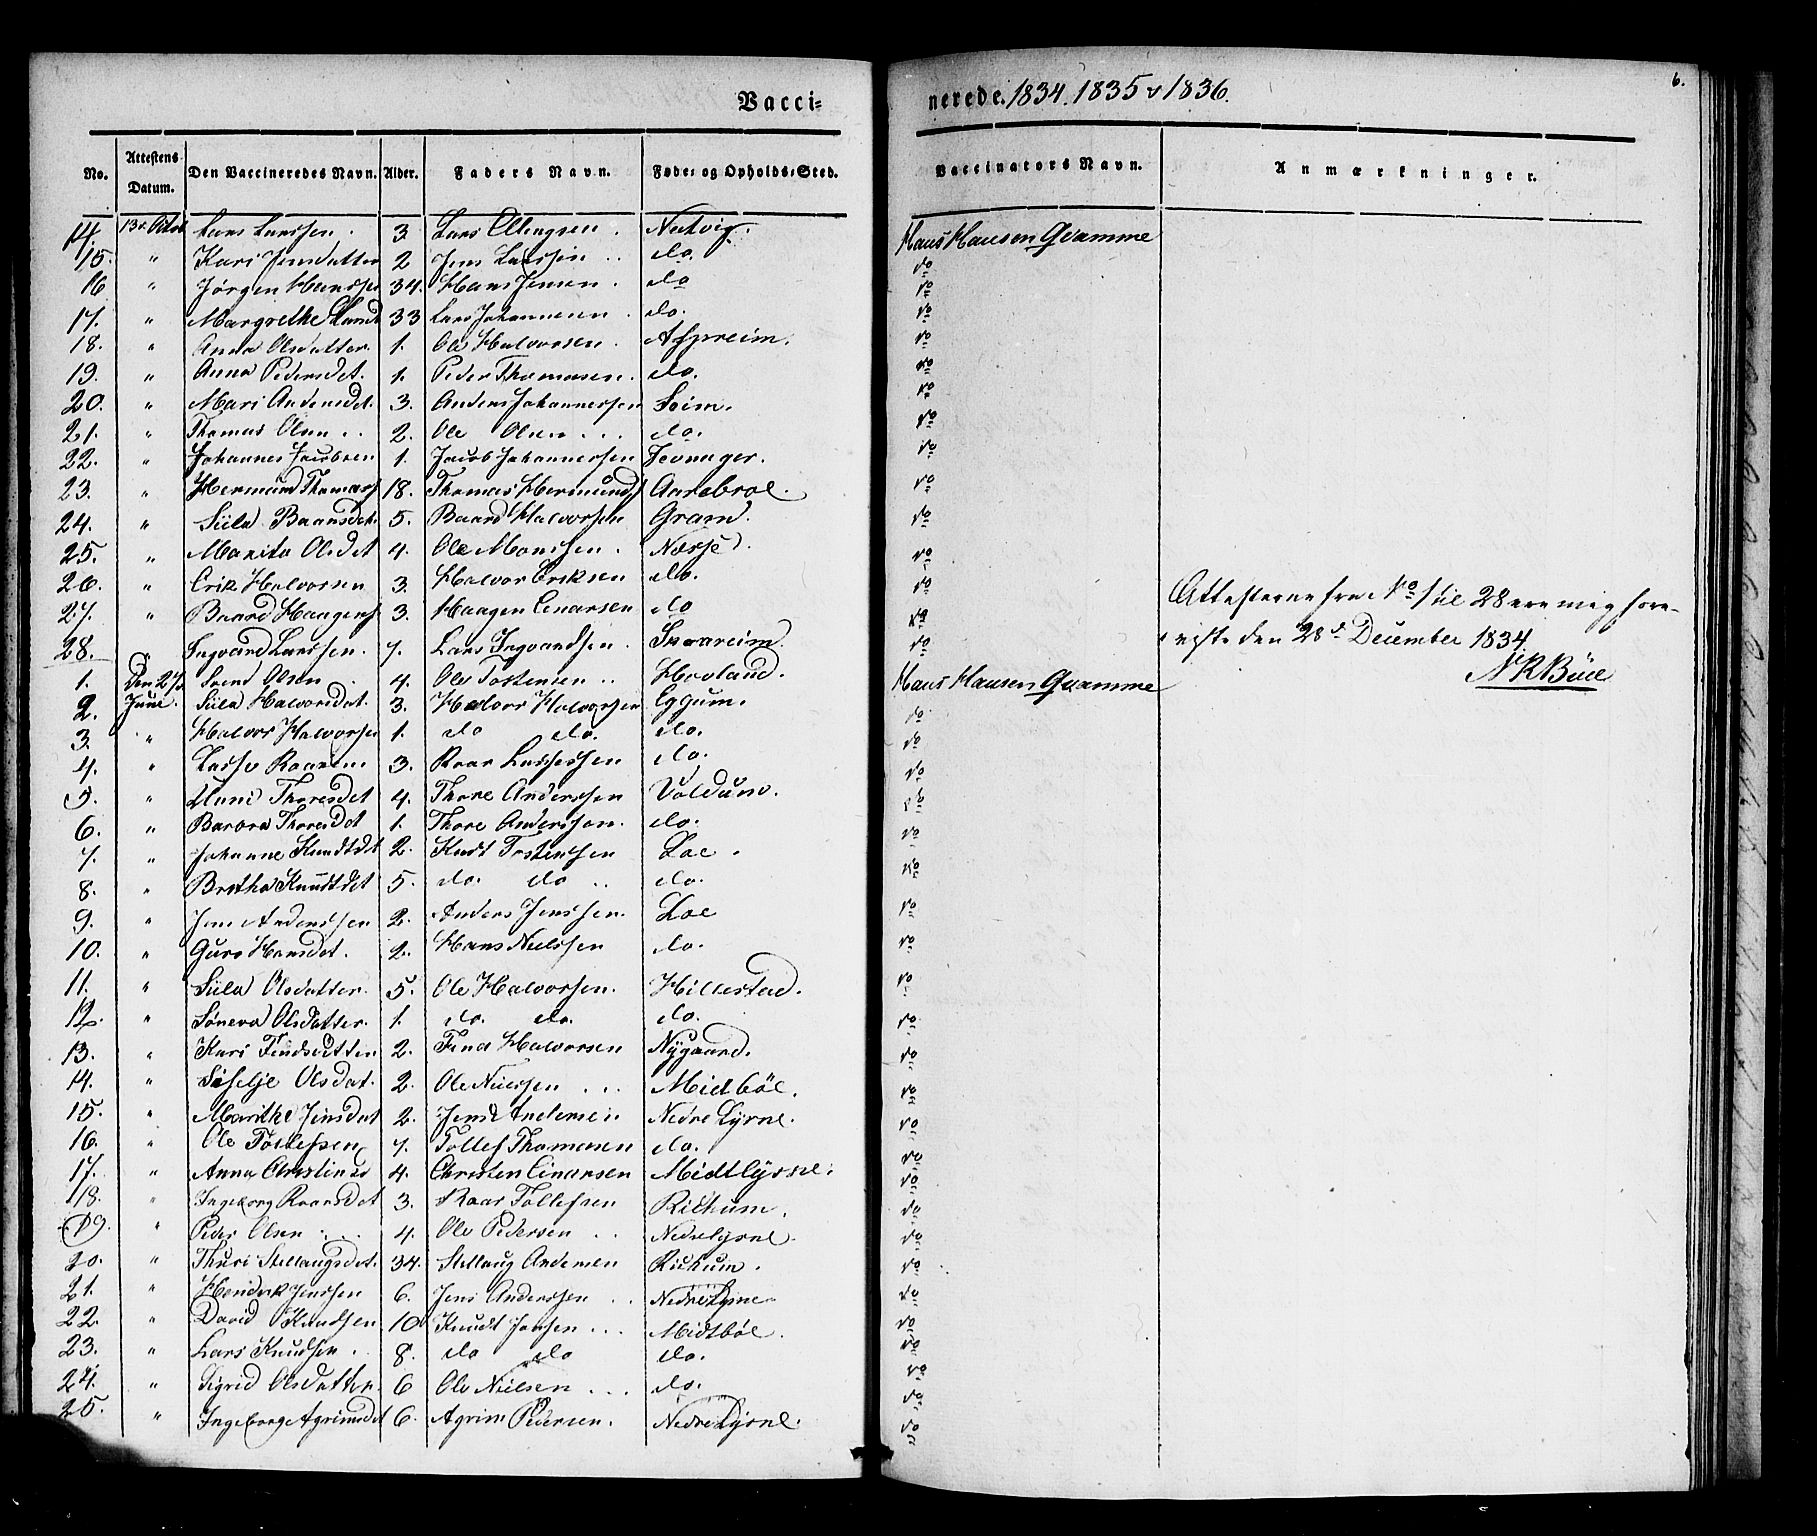 Vacci-
nerede. 1834. 1835 & 1836.
6.
No. Attestens Datum. Den Vaccineredes Navn. Alder. Faders Navn. Føde- og Opholds-Sted. Vaccinators Navn. Anmærkninger.
14. Lars Larssen. 3. Lars Ellingsen. Hans Hansen Qvamme
15. " Kari Jensdatter 2 Jens Larssen do. do
16 " Jørgen Hanssen 34. Hans Jensen. do do
17. " Margrethe 33 Lars Johannesen do. do
18. " Anna Olsdatter. 1. Ole Halvorsen. do
19. " Anna Pedersdet. 1. Peder Thomassen. do. do
20. " Mari Andersdet. 3. Anders Johannessen Soim. do
21. " Thomas Olsen .. 2. Ole Olsen ... do. do
22. " Johannes Jacobsen 1. Jacob Johannessen do
23. " Hermund Thomass 18. Thomas Hermunds Aarebroe. do
24. " Siila Baarsdet. 5. Baard Halvorsen Gram. do
25. " Marita Olsdet 4. Ole Monssen. do
26. " Erik Halvorsen 3. Halvor Eriksen do. do
27. " Baard Haagens 3. Haagen Einarsen do do
28. " Ingvard Larssen. 7. Lars Ingvardsen. do
Attesterne fra No 1 til 28 ere mig fore-
viste den 28d December 1834.
N R Büll
1. Den 27d Svend Olsen 4. Ole Tostensen .. Hovland. Hans Hansen Qvamme
2. June. Siila Halvorsdat. 3. Halvor Halvorsen Eggum. do
3. " Halvor Halvorsen 1. do do. do. do
4. " Lasse Roarsen. 3. Roar Lassessen do. do
5. " Thoresdet 4. Thore Anderssen Voldum. do
6. " Barbra Thoresdet 1. Thore Anderssen. do. do
7. " Johanne Knudtdet 2. Knudt Tostenssen Loe. do
8. " Bretha Knudtdet 5. do. do .. do. do
9. " Jens Anderssen 2. Anders Jenssen. Loe do
10. " Guro Hansdet. 2. Hans Nielssen do. do
11. " Siila Olsdatter. 5. Ole Halvorsen. Hillestad. do
12. " Søneva Olsdatter. 1. do. do. do. do
13. " Kari Findsdatter 2. Find Halvorsen Nygaard. do
14. " Siselje Olsdat. 2. Ole Nielssen ... Midtböe. do
15. " Marithe Jensdat 2. Jens Andersen Nedre Lysne. do
16. " Ole Tollefsen 7. Tollef Thomesen do. do
17. " Anna Christined 4. Christen Einarsen Midtlysne. do
18. " Ingeborg Roarsdet 3. Roar Tollefsen Rickum. do
19. " Peder Olsen ... 4. Ole Pedersen .. Nedrelysne. do
20. " Thuri Stellaugsdet. 34. Stellaug Andersen Rickum. do
21. " Henderk Jenssen 6. Jens Anderssen .. Nedre Lysne do
22. " David Knudsen 10 Knudt Jonsen ... Midtböe. do
23. " Lars Knudsen. 8. do do do. do
24. " Sigrid Olsdatter. 6 Ole Nielsen ... do. do
25. " Ingeborg Agrimsdet 6. Agrim Pedersen. Nedre Lysne. do